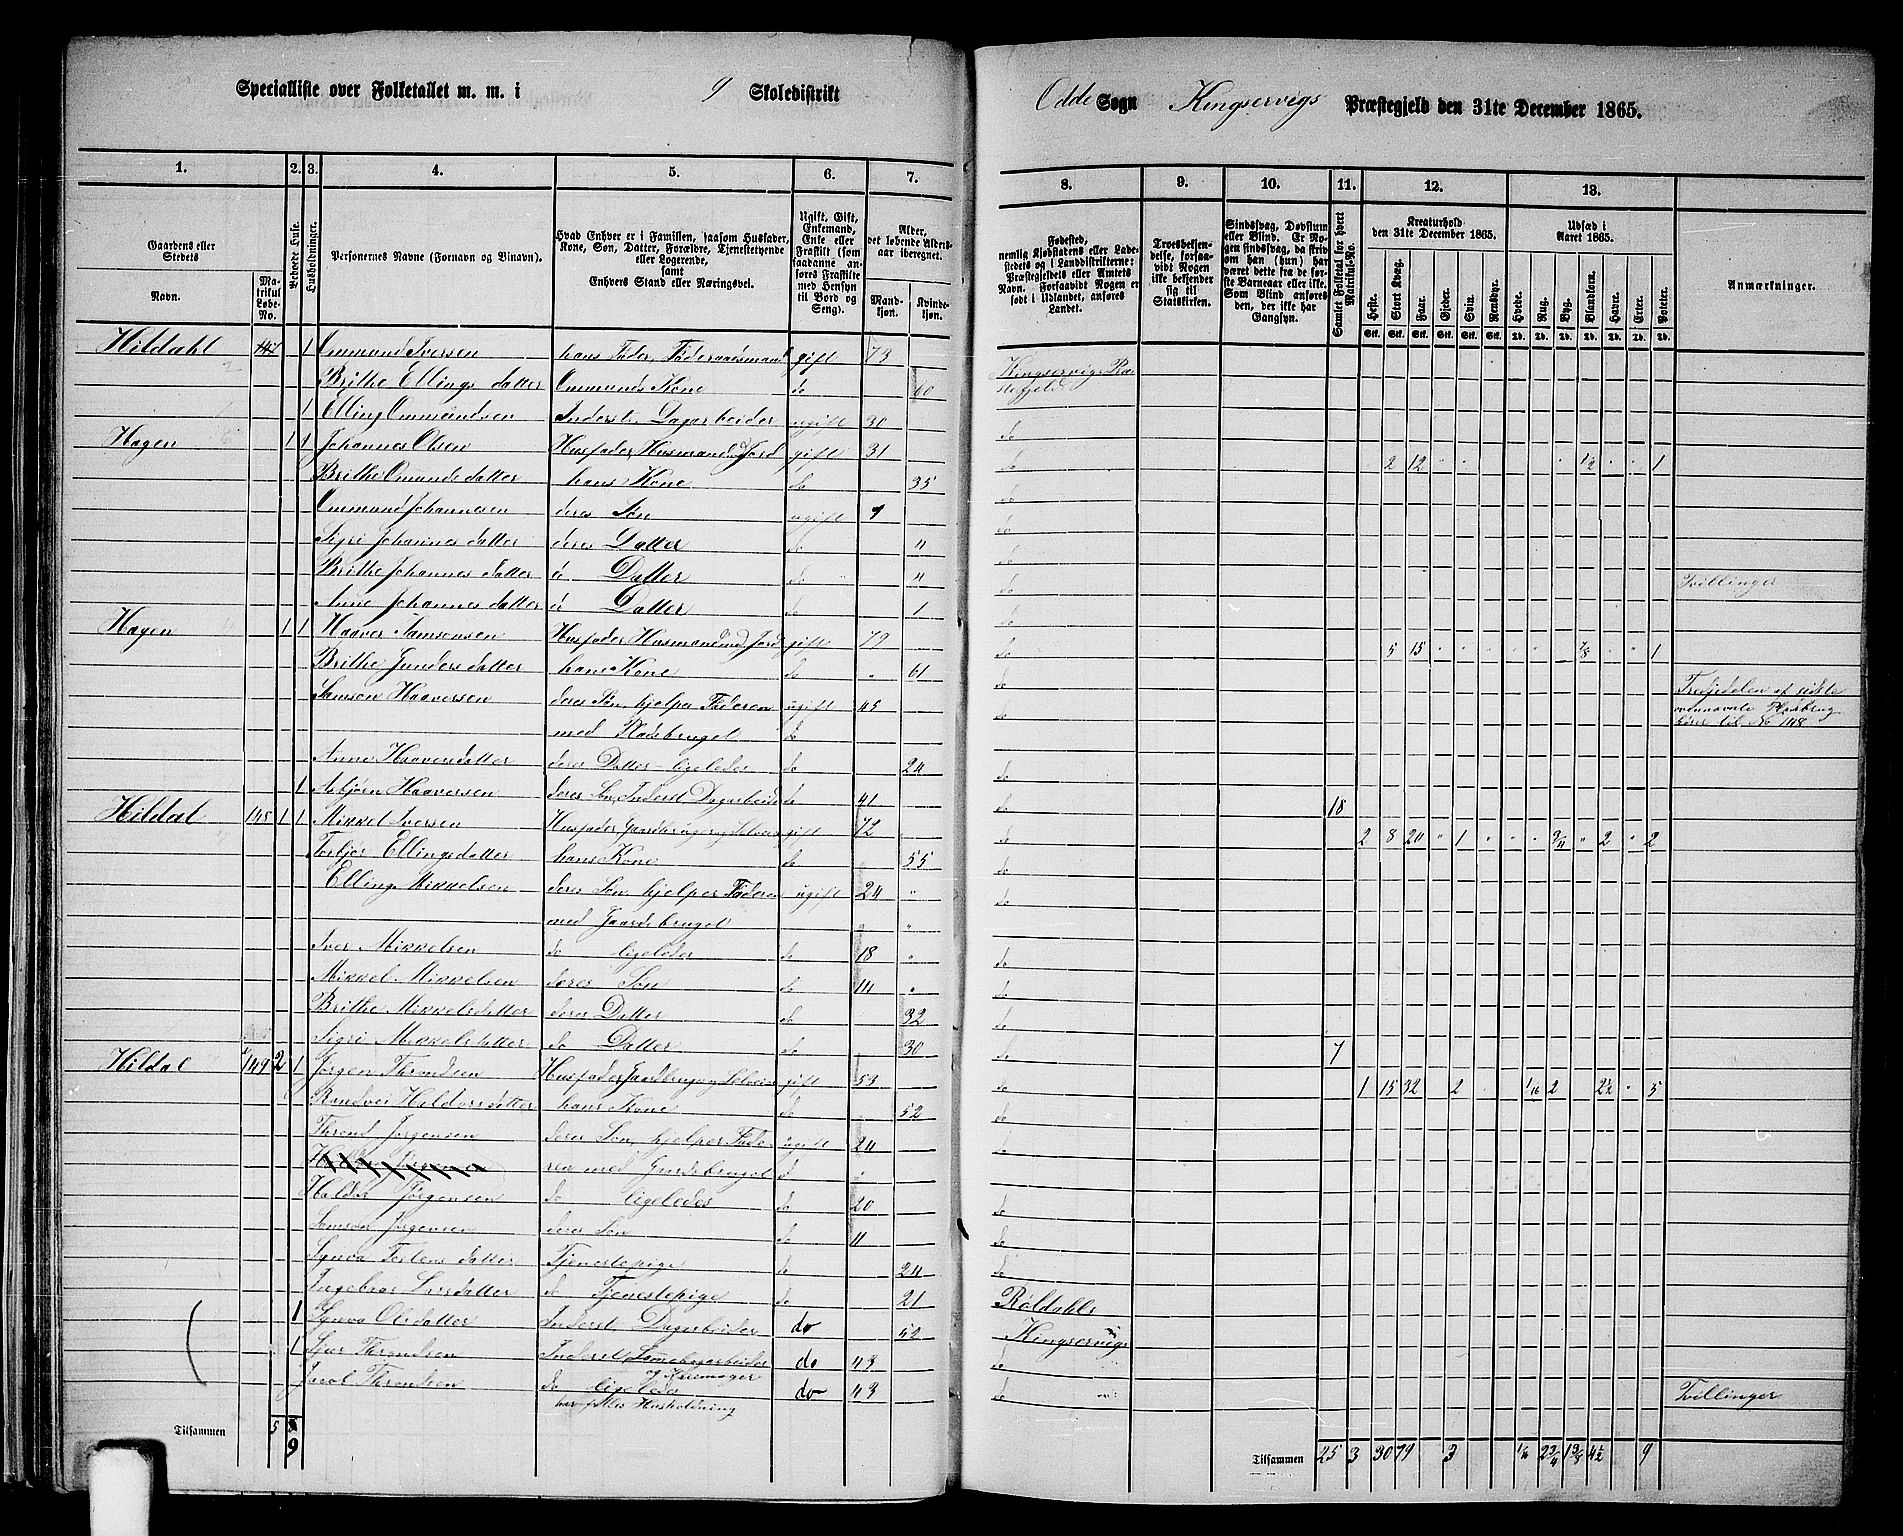 Specialliste over Folketallet m. m. i 9 Skoledistrikt Odde Sogn Kingservigs Præstegjeld den 31te December 1865.
1. 2. 3. 4. 5. 6. 7. 8. 9. 10. 11. 12. 13.
Gaardens eller Stedets
Navn.
Matrikul Løbe-No.
Beboede Huse.
Husholdninger.
Personernes Navne (Fornavn og Tilnavn).
Hvad Enhver er i Familien, saasom Husfader, Kone, Søn, Datter, Forældre, Tjenestetyende eller Logerende, samt Enhvers Stand eller Næringsvei.
Ugift, Gift, Enkemand, Enke eller Fraskilt (som saadanne anføres Fraskilte med Hensyn til Bord og Seng).
Alder, det løbende Aldersaar iberegnet.
Mandkjøn. Kvindekjøn.
Fødested, nemlig Kjøbstadens eller Ladestedets og i Landdistrikterne: Præstegjeldets eller Amtets Navn. Forsaavidt Nogen er født i Udlandet, anføres Landet.
Troesbekjendelse, forsaavidt Nogen ikke bekjender sig til Statskirken.
Sindssvag, Døvstum eller Blind. Er Nogen sindssvag, da skrives om han (hun) har været dette fra de første Barneaar eller ikke. Som Blind anføres den, der ikke har Gangsyn.
Samlet Folketal for hvert Matrikul-No.
Kreaturhold den 31te December 1865.
Heste. Stort Kvæg. Faar. Gjeder. Svin. Rensdyr.
Udsæd i Aaret 1865.
Hvede. Rug. Byg. Blandkorn. Havre. Erter. Poteter.
Anmærkninger.
Hildahl 1 Ommund Iversen hans Fader, Føderaadsmand gift 73 Kingservigs Præstegjeld
Brithe Ellingsdatter Ommunds Kone do 60
1 Elling Ommundsen Inderst, Dagarbeider ugift 30 do
Hagen 1 1 Johannes Olsen Husfader, Husmand m Jord gift 31 do 2 12 " " " 1/2 " " 1
Brithe Omundsdatter hans Kone do 35 do
Ommund Johannesen deres Søn ugift 7 do
Sigri Johannesdatter deres Datter do 4 do
Brithe Johannesdatter d Datter do 4 do Tvillinger
Anne Johannesdatter d Datter do 1 do
Hagen 1 1 Haaver Samsonsen Husfader, Husmand m Jord gift 79 do 5 15 " " " " " 1/8 " " 1
Brithe Gundersdatter hans Kone do " 61 do
Samson Haaversen deres Søn, hjelper Faderen ugift 45 do Tredjedelen af sidste ovennævnte Pladsbrug hører til No 148
med Pladsbruget do
Anne Haaversdatter deres Datter ligeledes do 24 do
1 Asbjørn Haaversen deres Søn, Inderst Dagarbeider do 41 do 18
Hildal 145 1 1 Mikkel Iversen Husfader, Gaardbruger og Selveier gift 72 do 2 8 20 " 1 " " " 3/4 " 2 " 2
Torbjor Ellingsdatter hans Kone do 55 do
Elling Mikkelsen deres Søn, hjelper Faderen ugift 24 " do
med Gaardsbruget " "
Iver Mikkelsen do ligeledes do 18 " do
Mikkel Mikkelsen deres Søn do 14 " do
Brithe Mikkelsdatter deres Datter do 32 do
Sigri Mikkelsdatter do Datter do 30 do 7
Hildal 149 2 1 Jørgen Throndsen Husfader, Gaardbruger og Selveier gift 53 do 1 15 32 2 1/16 2 2 1/2 " 5
Randvei Haldorsdatter hans Kone do 52 do
Thrond Jørgensen deres Søn, hjelper Fade- ugift 24 do
ren med Gaardsbruget d "
Haldor Jørgensen do ligeledes do 20 do
Samson Jørgensen deres Søn do 11 do
Synva Torlensdatter Tjenestepige do 24 do
Ingeborg Larsdatter do Tjenestepige do 21 Røldahls
1 Synva Olsdatter Inderst Dagarbeider do 52 Kingservigs
1 Sjur Throndsen Inderst do 43 do
Jacob Throndsen do ligeledes do 43 do Tvillinger
har fælles Husholdning
Tilsammen 5 9 Tilsammen 25 3 30 79 3 1/16 2 3/4 1 5/8 4 1/2 9